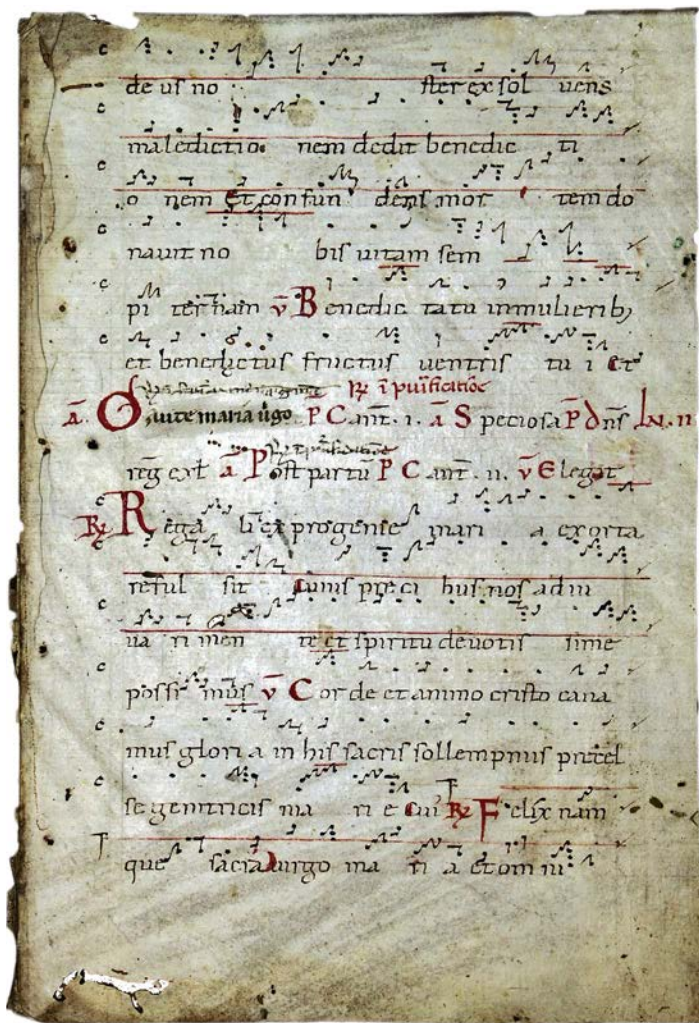 de us no ster ex sol uens
maledictio nem dedit benedic ti
o nem Et con fun dens mor tem do
nauit no bis uitam sem
pi ter nam v̄ Benedic ta tu in mulierib;
et benedictus fructus uentris tu i Et
R̄ ī purificatiōe
ā. Gaude maria ūgo P̄ Cant. i. ā Speciosa P̄ Dn̄s
reḡ exl̄ ā Post partū P̄ Cant. ii. v̄ Elegit
R̄ Rega li ex progenie mari a exorta
reful sit Cuius preci bus nos ad iu
ua ri men te et spiritu deuotis sime
possi mus v̄ Corde et animo cristo cana
mus glori a in his sacris sollempniis precel
se genitricis ma ri e Cui R̄ Felix nam
que sacra uirgo ma ri a et om ni